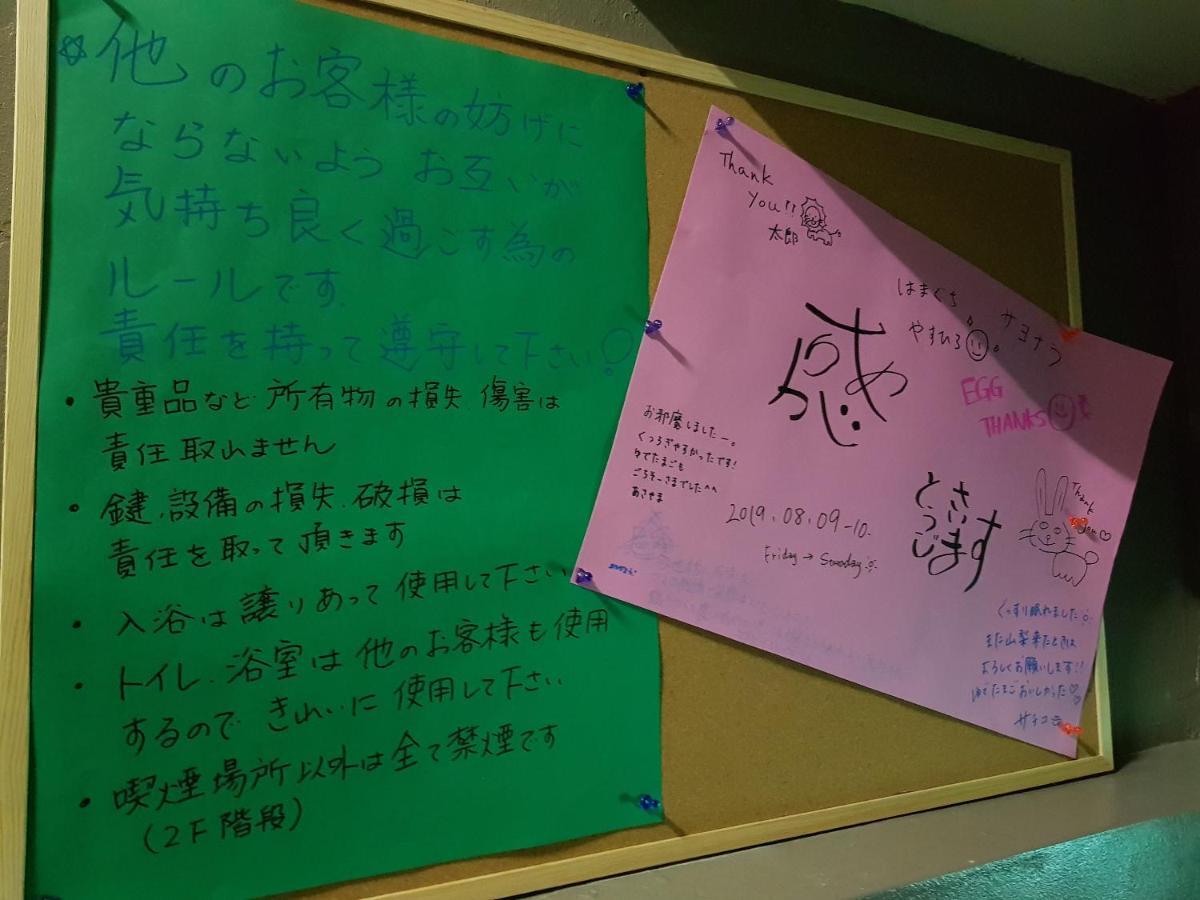 ☆他のお客様の妨げに
ならないよう お互いが
気持ち良く過こす為の
ルールです.
責任を持って遵守して下さい!
・貴重品など所有物の損失.傷害は
責任取れません
・鍵.設備の損失.破損は
責任を取って頂きます
・入浴は譲りあって使用して下さい
・トイレ.浴室は他のお客様も使用
するので きれいに使用して下さい
・喫煙場所以外は全て禁煙です
(2F階段)
Thank
You!!
太郎
はまぐち
やすひろ。
サヨナラ
EGG
THANKS
お邪魔しましたー。
くつろぎやすかったです!
ゆでたまごも
ごちそーさまでした^^
あさやま
2019.08.09-10.
Friday →
Thank
ぐっすり眠れました
また山梨来たときは
よろしくお願いします!!
ゆでたまごおいしかった♡